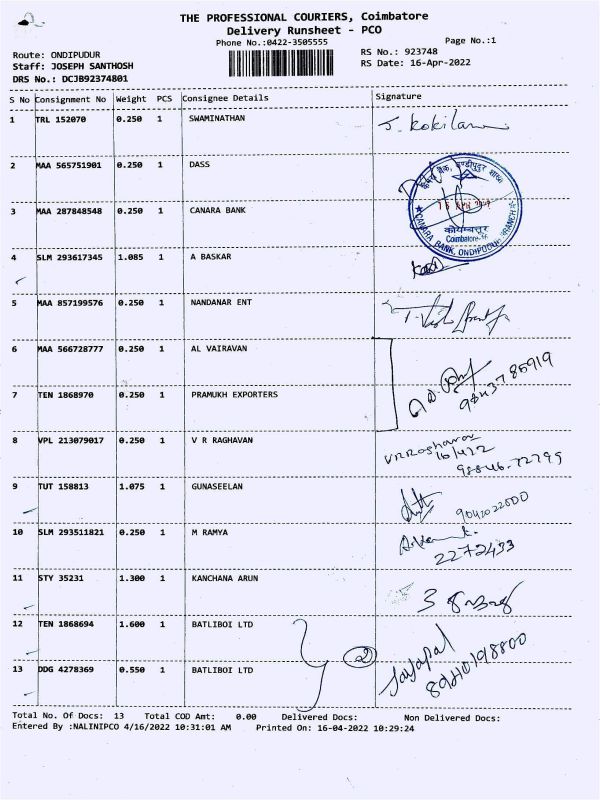 THE PROFESSIONAL COURIERS, Coimbatore
Delivery Runsheet - PCO
Phone No.:0422-3505555
Page No.:1
Route: ONDIPUDUR
RS No.: 923748
Staff: JOSEPH SANTHOSH
RS Date: 16-Apr-2022
DRS No.: DCJB92374801
S No Consignment No Weight PCS Consignee Details Signature
1 TRL 152070 0.250 1 SWAMINATHAN J. Kokila
2 MAA 565751901 0.250 1 DASS
3 MAA 287848548 0.250 1 CANARA BANK
कोयम्बत्तूर
Coimbatore-
CANARA BANK, ONDIPUDUR BRANCH
4 SLM 293617345 1.085 1 A BASKAR
5 MAA 857199576 0.250 1 NANDANAR ENT
6 MAA 566728777 0.250 1 AL VAIRAVAN
7 TEN 1868970 0.250 1 PRAMUKH EXPORTERS
98437 85919
8 VPL 213079017 0.250 1 V R RAGHAVAN VRRaghavan
16/4/22
98846-72795
9 TUT 158813 1.075 1 GUNASEELAN
9041022000
10 SLM 293511821 0.250 1 M RAMYA
2272433
11 STY 35231 1.300 1 KANCHANA ARUN
12 TEN 1868694 1.600 1 BATLIBOI LTD
2 Jayapal
13 DDG 4278369 0.550 1 BATLIBOI LTD
Total No. Of Docs: 13 Total COD Amt: 0.00 Delivered Docs: Non Delivered Docs:
Entered By :NALINIPCO 4/16/2022 10:31:01 AM Printed On: 16-04-2022 10:29:24